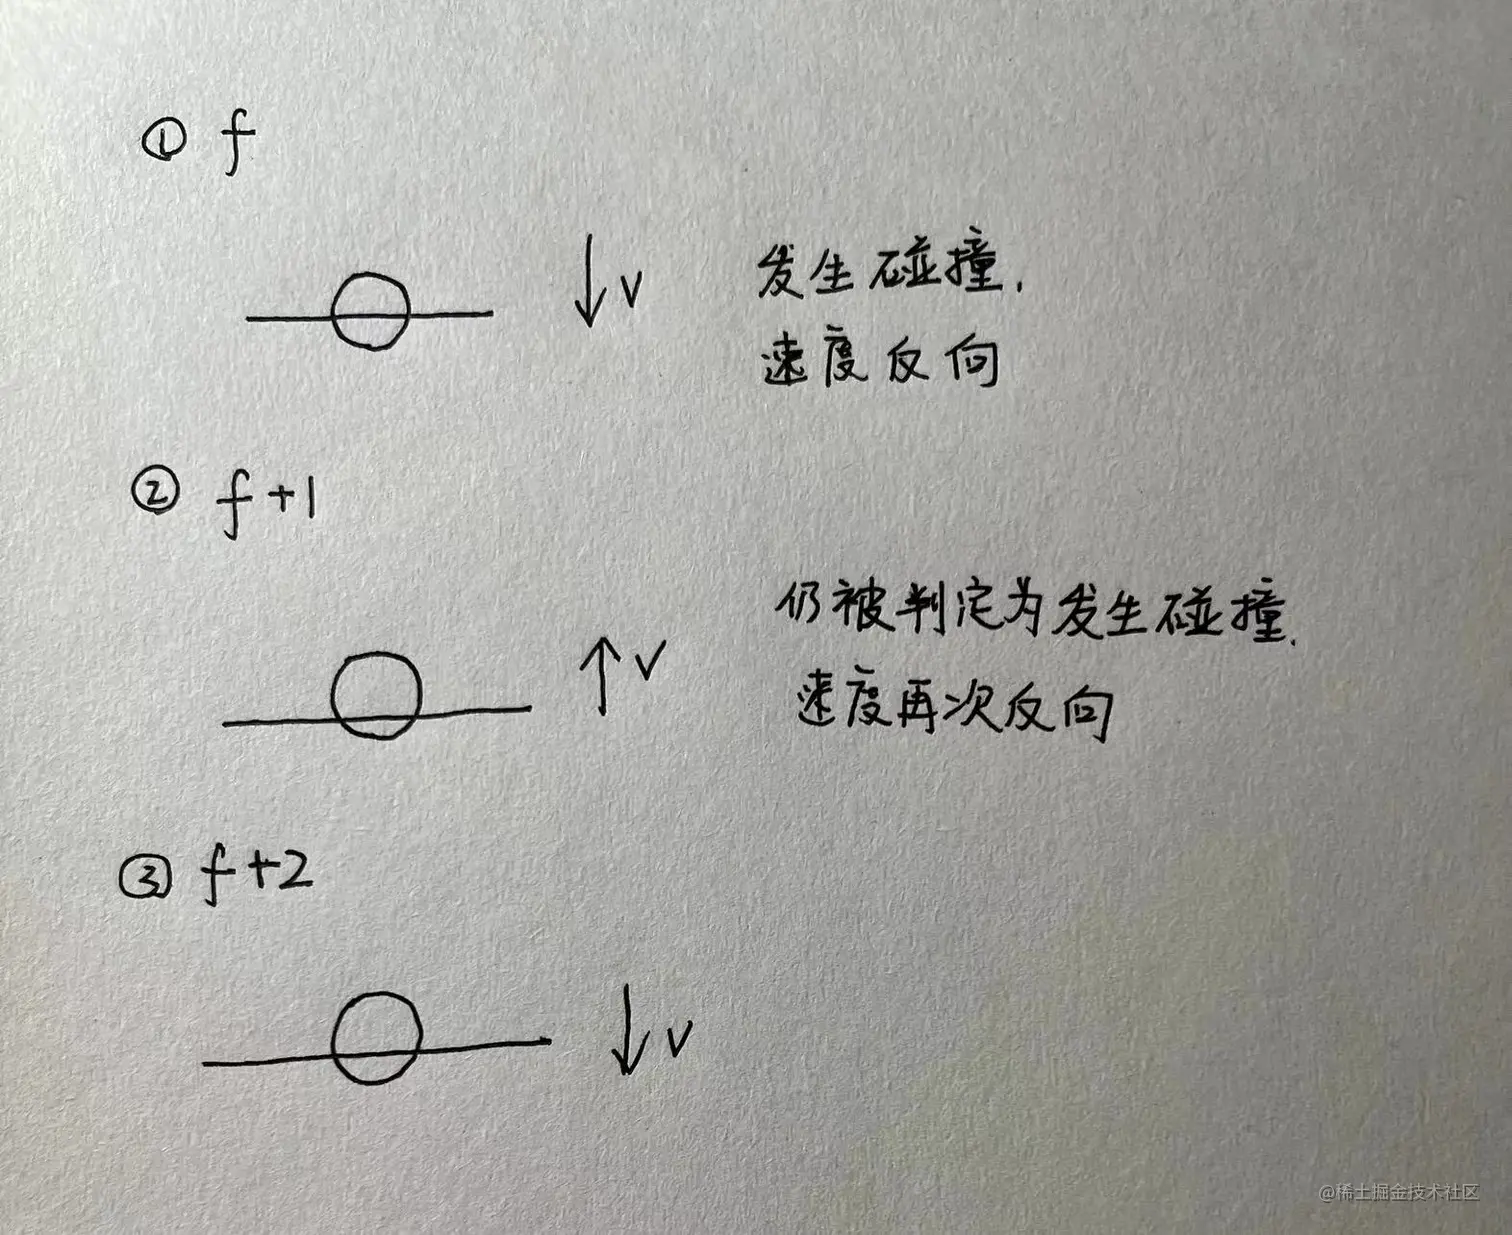 ① f
↓ v
发生碰撞,
速度反向
② f+1
↑ v
仍被判定为发生碰撞,
速度再次反向
③ f+2
↓ v
@稀土掘金技术社区